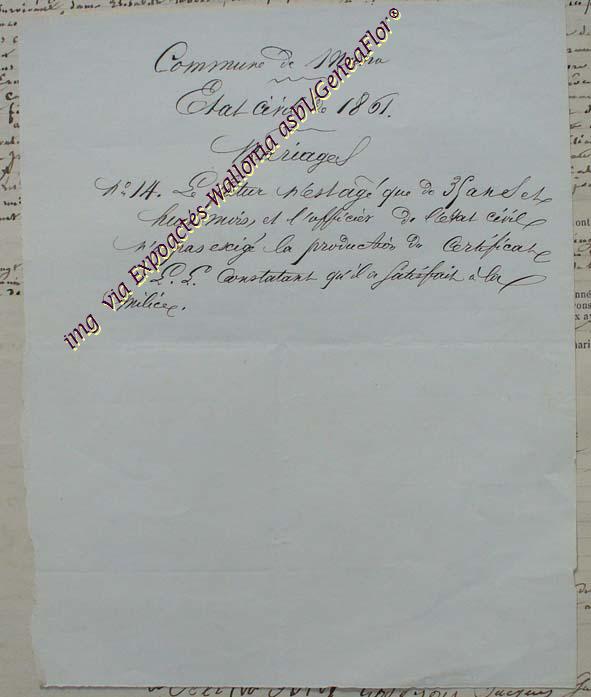 Commune de
Etat civil de 1861.
Mariages
N° 14. Le futur n'est agé que de 35 ans et
huit mois, et l'officier de l'état civil
n'a pas exigé la production du certificat
L. L. constatant qu'il a satisfait à la
milice.
img via Expoactes-Wallonia asbl/GeneaFlor®